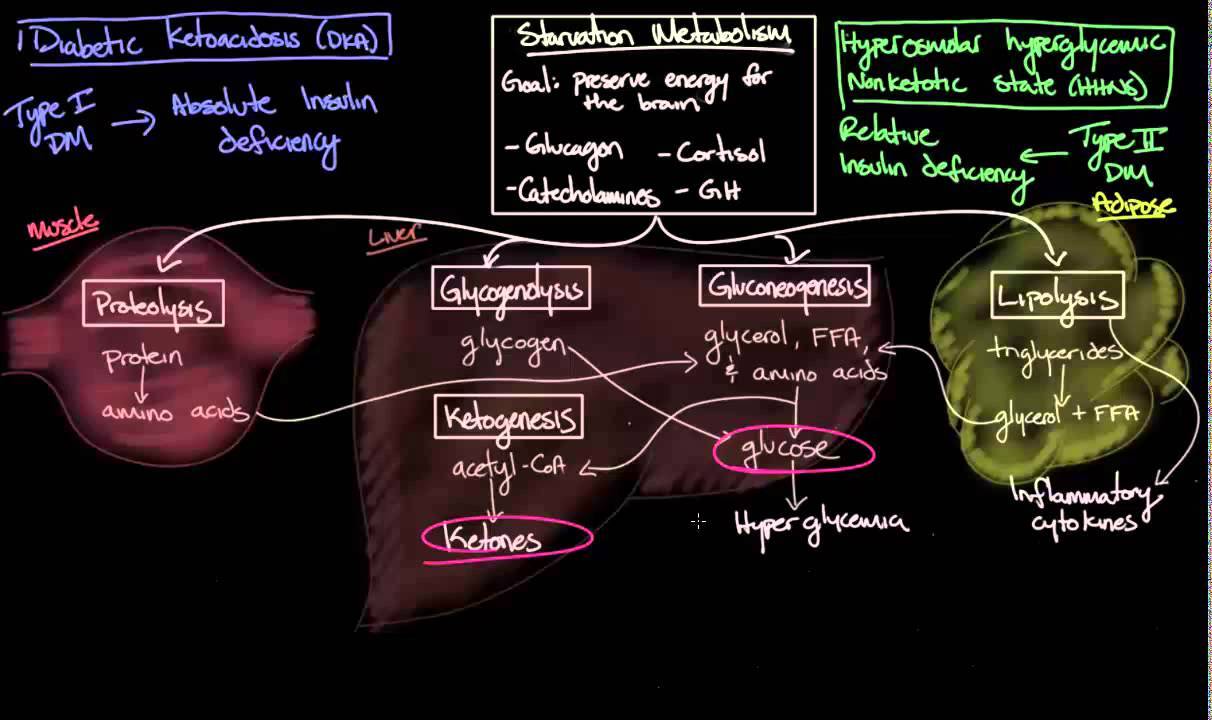 Diabetic Ketoacidosis (DKA)
Type I DM → Absolute Insulin deficiency
Starvation Metabolism
Goal: preserve energy for
the brain
- Glucagon - Cortisol
- Catecholamines - GH
Hyperosmolar hyperglycemic
Nonketotic state (HHNS)
Relative
Insulin deficiency ← Type II
DM
Muscle
Proteolysis
protein
amino acids
Liver
Glycogenolysis
glycogen
Ketogenesis
acetyl-CoA
Ketones
Gluconeogenesis
glycerol, FFA,
& amino acids
glucose
Hyperglycemia
Adipose
Lipolysis
triglycerides
glycerol + FFA
Inflammatory
cytokines